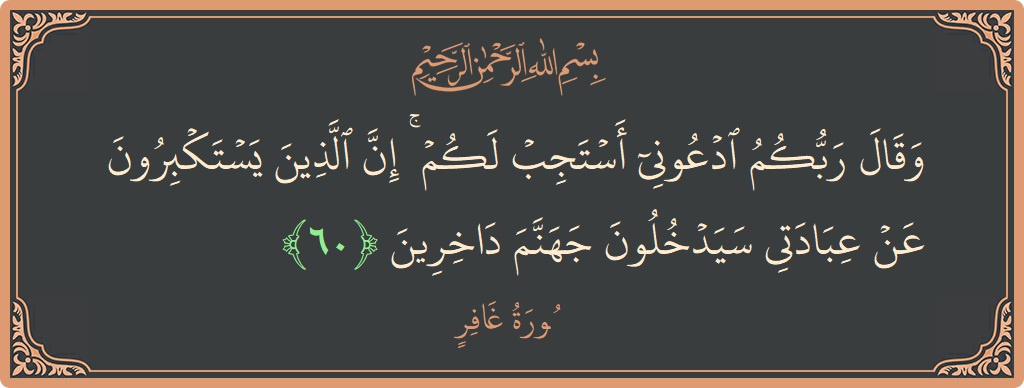 بِسْمِ اللهِ الرَّحْمٰنِ الرَّحِيْمِ
وَقَالَ رَبُّكُمُ ٱدۡعُونِيٓ أَسۡتَجِبۡ لَكُمۡۚ إِنَّ ٱلَّذِينَ يَسۡتَكۡبِرُونَ
عَنۡ عِبَادَتِي سَيَدۡخُلُونَ جَهَنَّمَ دَاخِرِينَ ﴿٦٠﴾
سُورَةُ غَافِرٍ